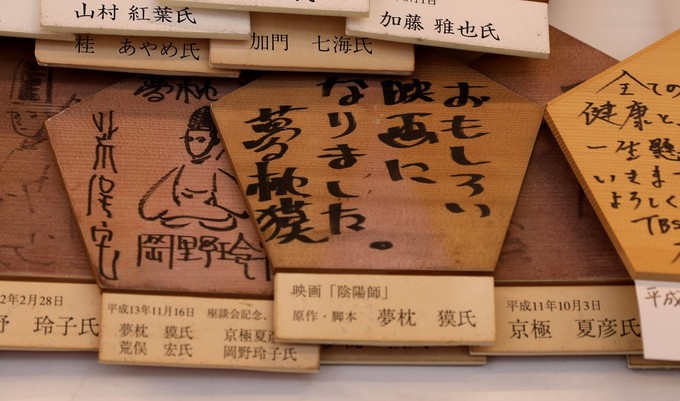 山村 紅葉氏
加藤 雅也氏
桂 あやめ氏
加門 七海氏
おもしろい
映画に
なりました。
夢枕獏
映画「陰陽師」
原作・脚本 夢枕 獏氏
夢枕
荒俣宏
岡野玲
平成13年11月16日 座談会記念、
夢枕 獏氏 京極夏彦
荒俣 宏氏 岡野玲子氏
2年2月28日
野 玲子氏
平成11年10月3日
京極 夏彦氏
全ての
健康と
一生懸
いきま
よろしく
TBS
平成